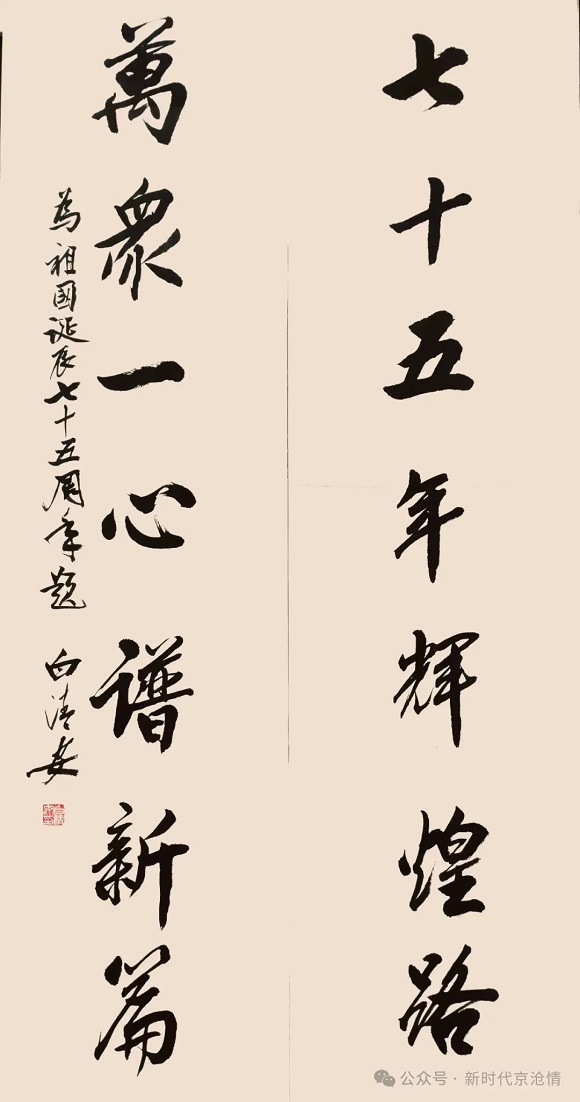 七十五年輝煌路
萬眾一心譜新篇
為祖國誕辰七十五周年題 白清安
公众号·新时代京沧情